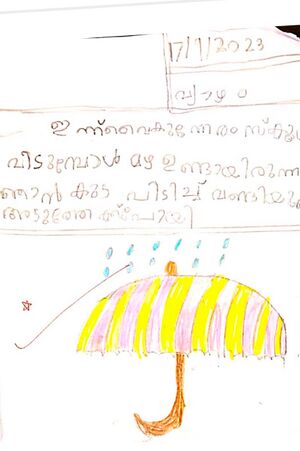 17/1/2023
വ്യാഴം
ഇന്ന് വൈകുന്നേരം സ്കൂൾ
വിടുമ്പോൾ മഴ ഉണ്ടായിരുന്ന
ഞാൻ കുട പിടിച്ച് വണ്ടിയു
അടുത്തേക്ക് പോയി